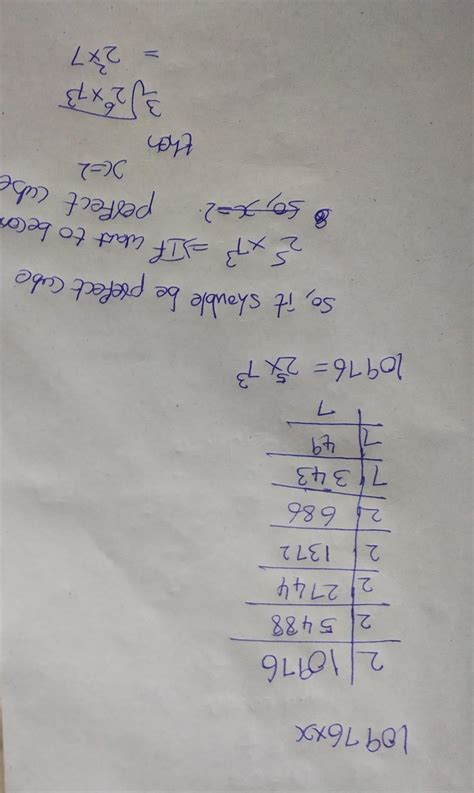 10976xx
2 | 10976
2 | 5488
2 | 2744
2 | 1372
2 | 686
7 | 343
7 | 49
7
10976 = 2⁵x7³
So, it shouble be prefect cube
2⁵x7³ ⇒ If want to becom
So, x=2 perfect cube
x=2
than
∛2⁶x7³
= 2²x7